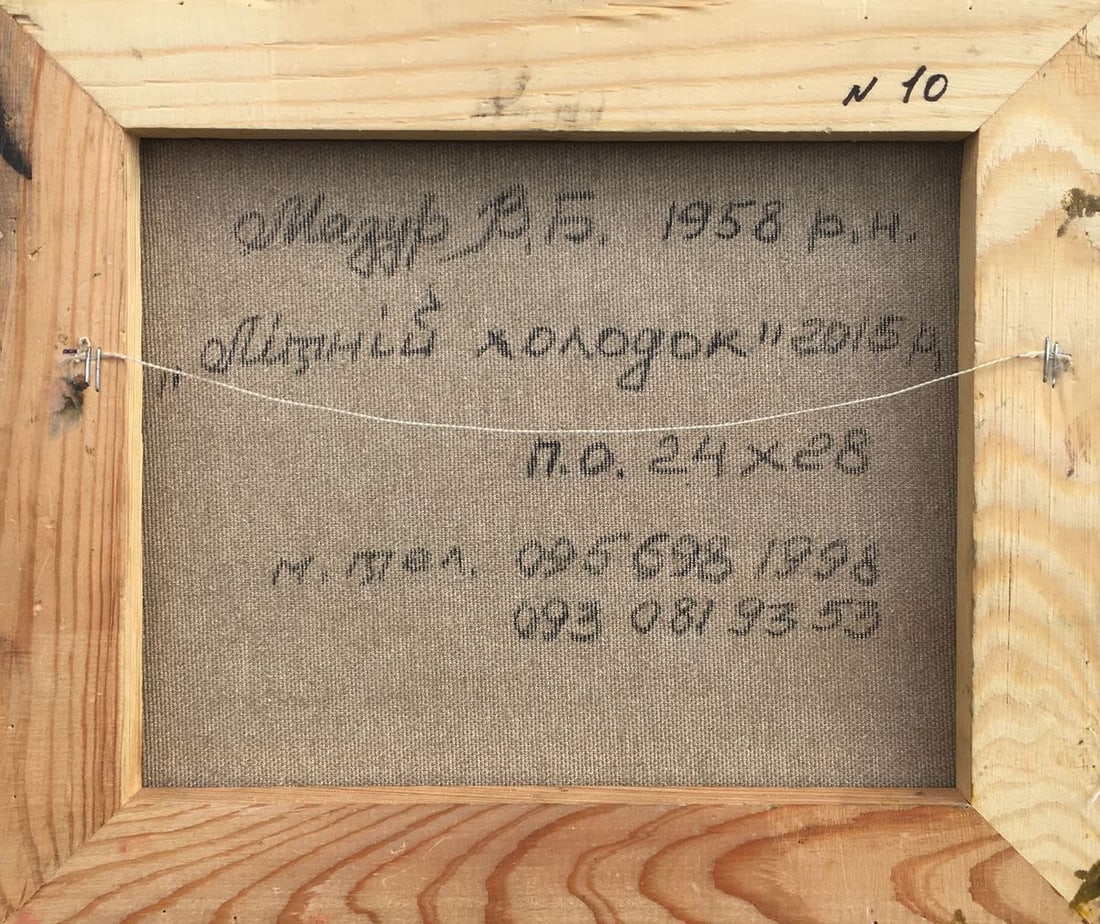 N 10
Мазур В.Б. 1958 р.н.
„Літній холодок" 2015 р.
п.о. 24х28
м. тел. 095 698 1998
093 081 93 53